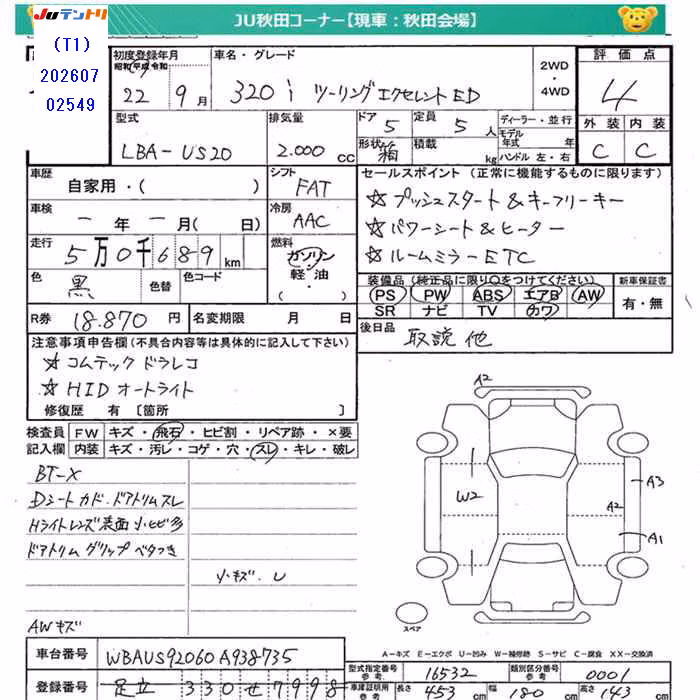 JUテントリ
JU秋田コーナー【現車：秋田会場】
(T1)
202607
02549
初度登録年月
昭和 平成 令和
22年 9月
車名・グレード
320i ツーリングエクセレントED
2WD
・
4WD
評価点
4
型式
LBA-US20
排気量
2.000 CC
ドア 5
形状 箱
定員 5人
積載 kg
ディーラー・並行
モデル年式 年
ハンドル 左・右
外装 内装
C C
車歴
自家用・( )
シフト
FAT
車検
ー年ー月( 日)
冷房
AAC
走行
5万0千689km
燃料
ガソリン
軽・油
( )
色
黒
色替
色コード
R券 18.870円
名変期限 月 日
セールスポイント (正常に機能するものに限ります)
☆プッシュスタート&キーフリーキー
☆パワーシート&ヒーター
☆ルームミラーETC
装備品(純正品に限り○をつけてください)
PS PW ABS エアB AW
SR ナビ TV カワ
新車保証書
有・無
後日品
取説 他
注意事項申告欄(不具合内容等は具体的に記入して下さい)
☆コムテック ドラレコ
☆HID オートライト
修復歴 有 [箇所 ]
検査員記入欄
FW キズ・飛石・ヒビ割・リペア跡・×要
内装 キズ・汚レ・コゲ・穴・スレ・キレ・破レ
BT-X
Dシートカド・ドアトリムスレ
Hライトレンズ表面 小ヒビ多
ドアトリムグリップ ベタつき
小キズ・U
AWキズ
A2
W2
A3
A2
A1
スペア
A－キズ E－エクボ U－凹み W－補修跡 S－サビ C－腐食 XX－交換済
車台番号 WBAUS92060A938735
型式指定番号 参考 16532
類別区分番号 参考 0001
登録番号 足立 330 せ 7998
車庫証明用 参考
長さ 453
幅 180
高さ